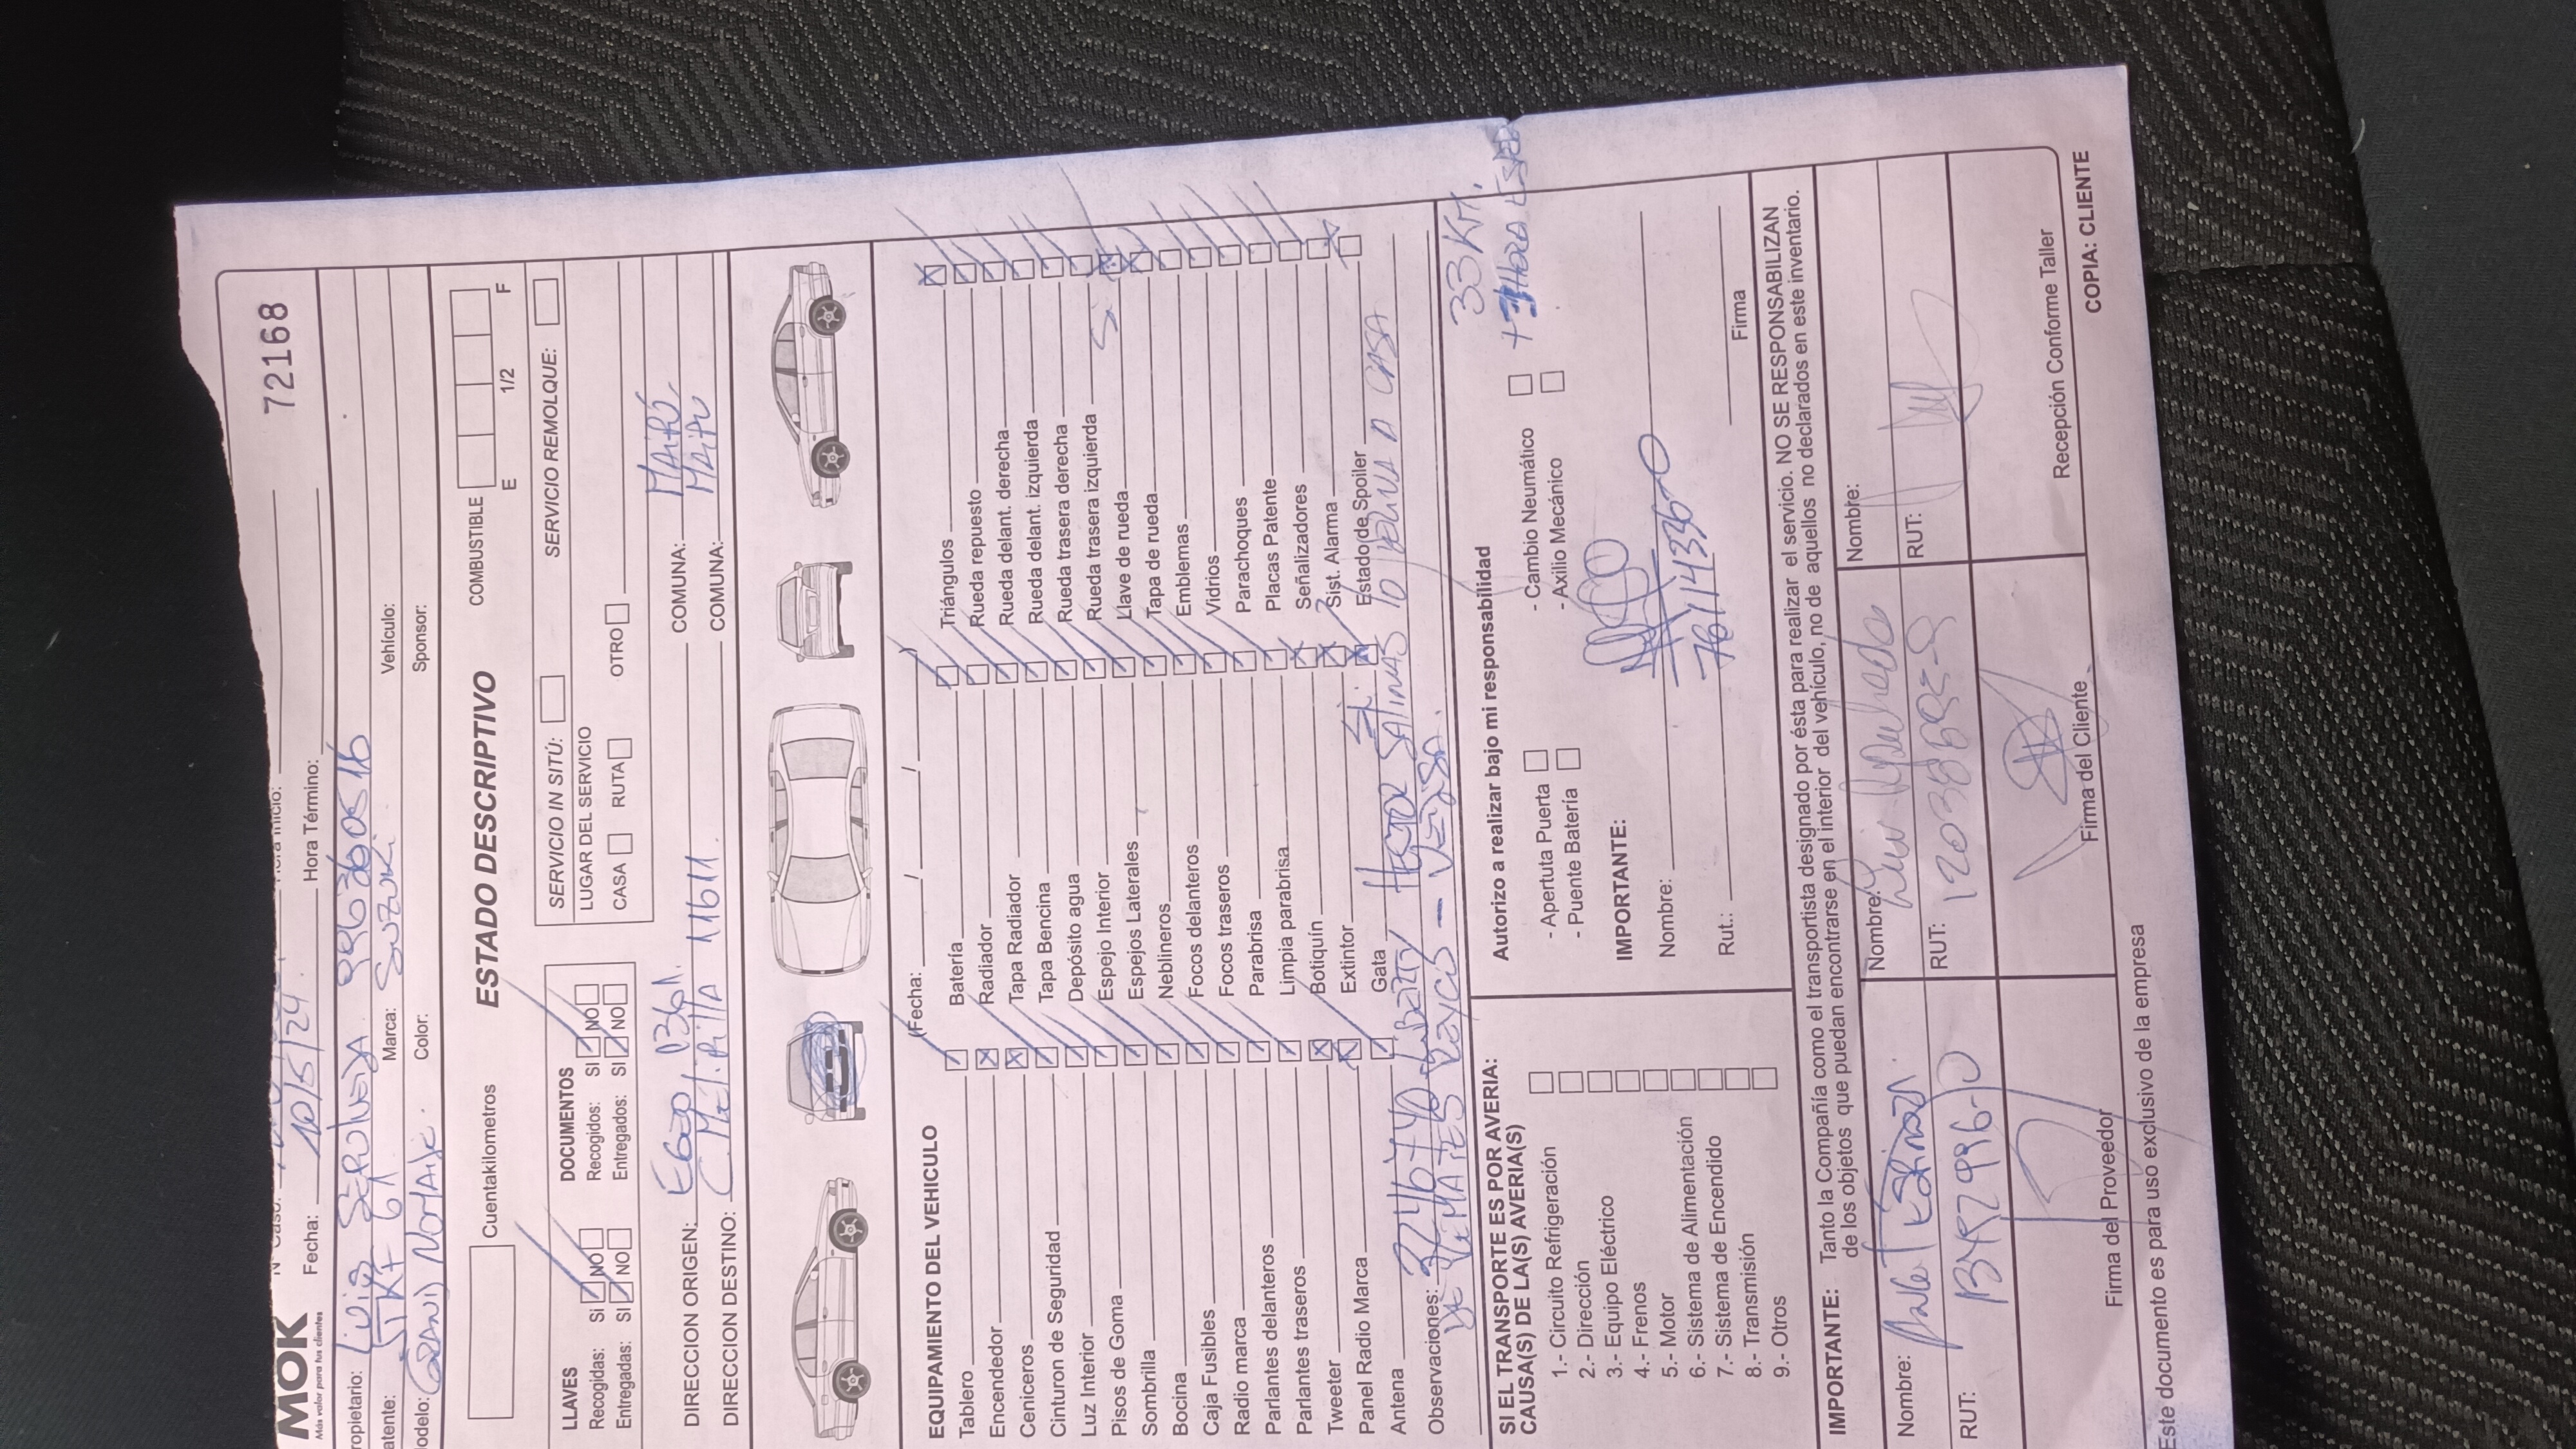 72168
MOK
Más valor para tus clientes
Fecha: 10/5/24. Hora Término:
ropietario: Livia Sepulveda 996260516
atente: Marca: Suzuki. Vehículo:
odelo: GRAND NOMADE. Color: Sponsor:
Cuentakilometros ESTADO DESCRIPTIVO COMBUSTIBLE E 1/2 F
LLAVES
Recogidas: SI NO
Entregadas: SI NO
DOCUMENTOS
Recogidos: SI NO
Entregados: SI NO
SERVICIO IN SITÚ: SERVICIO REMOLQUE:
LUGAR DEL SERVICIO
CASA RUTA OTRO
DIRECCION ORIGEN: COMUNA: MAIPÚ,
DIRECCION DESTINO: C. Melipilla 11611. COMUNA: MAIPU
EQUIPAMIENTO DEL VEHICULO (Fecha: / / )
Tablero Batería Triángulos
Encendedor Radiador Rueda repuesto
Ceniceros Tapa Radiador Rueda delant. derecha
Cinturon de Seguridad Tapa Bencina Rueda delant. izquierda
Luz Interior Depósito agua Rueda trasera derecha
Pisos de Goma Espejo Interior Rueda trasera izquierda
Sombrilla Espejos Laterales Llave de rueda Si
Bocina Neblineros Tapa de rueda
Caja Fusibles Focos delanteros Emblemas
Radio marca Focos traseros Vidrios
Parlantes delanteros Parabrisa Parachoques
Parlantes traseros Limpia parabrisa Placas Patente
Tweeter Botiquín Señalizadores
Panel Radio Marca Extintor Sist. Alarma
Antena Gata Si. Estado de Spoiler
Observaciones: 3246740 Liberty HECTOR SALINAS A CASA
DE REMATES 33 KM.
SI EL TRANSPORTE ES POR AVERIA:
CAUSA(S) DE LA(S) AVERIA(S)
1.- Circuito Refrigeración
2.- Dirección
3.- Equipo Eléctrico
4.- Frenos
5.- Motor
6.- Sistema de Alimentación
7.- Sistema de Encendido
8.- Transmisión
9.- Otros
Autorizo a realizar bajo mi responsabilidad
- Apertuta Puerta - Cambio Neumático
- Puente Batería - Axilio Mecánico
IMPORTANTE:
Nombre:
Rut.: Firma
IMPORTANTE: Tanto la Compañía como el transportista designado por ésta para realizar el servicio. NO SE RESPONSABILIZAN
de los objetos que puedan encontrarse en el interior del vehículo, no de aquellos no declarados en este inventario.
Nombre: Nombre: Luis Nombre:
RUT: RUT: RUT:
Firma del Proveedor Firma del Cliente Recepción Conforme Taller
Este documento es para uso exclusivo de la empresa COPIA: CLIENTE